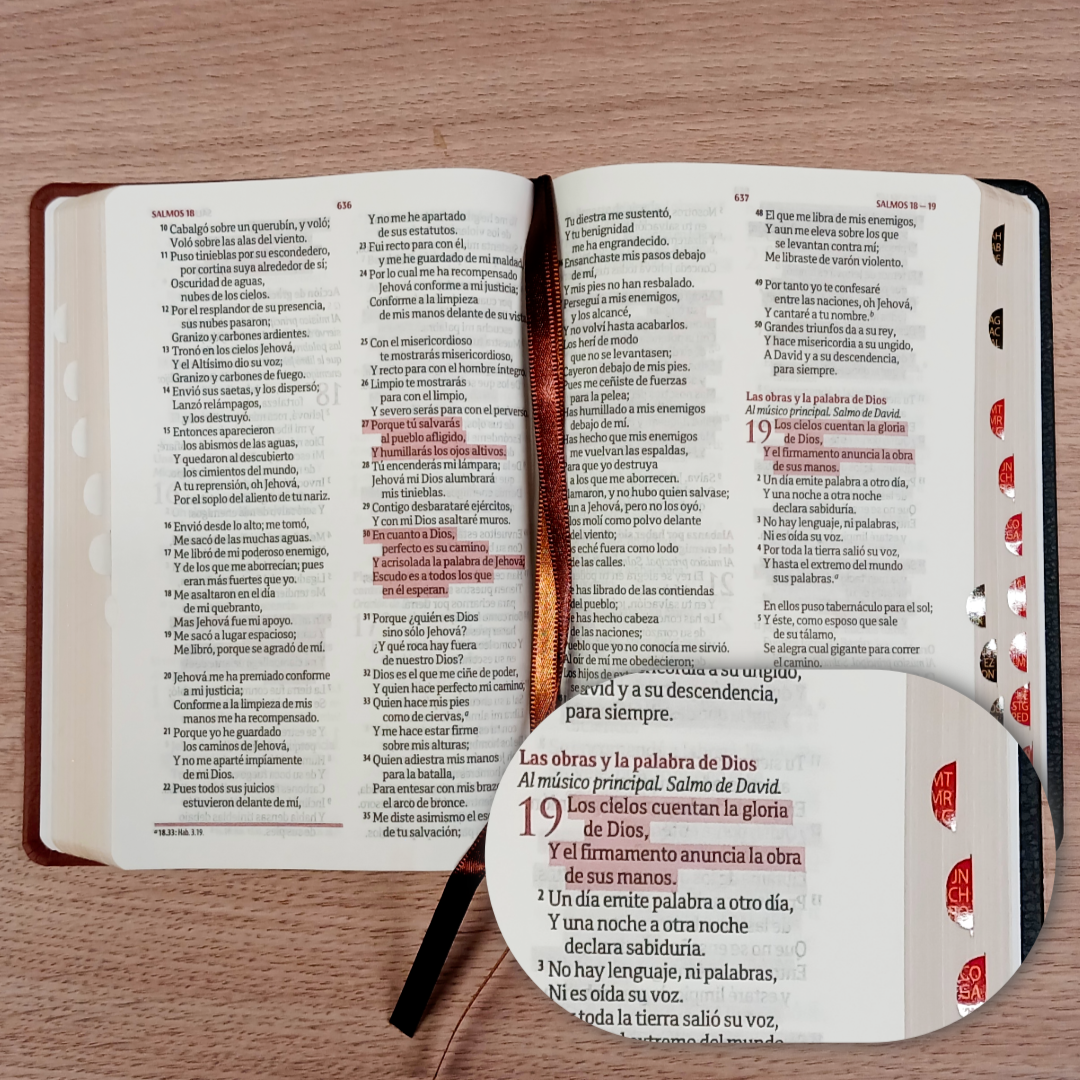 SALMOS 18
636
10 Cabalgó sobre un querubín, y voló;
Voló sobre las alas del viento.
11 Puso tinieblas por su escondedero,
por cortina suya alrededor de sí;
Oscuridad de aguas,
nubes de los cielos.
12 Por el resplandor de su presencia,
sus nubes pasaron;
Granizo y carbones ardientes.
13 Tronó en los cielos Jehová,
Y el Altísimo dio su voz;
Granizo y carbones de fuego.
14 Envió sus saetas, y los dispersó;
Lanzó relámpagos,
y los destruyó.
15 Entonces aparecieron
los abismos de las aguas,
Y quedaron al descubierto
los cimientos del mundo,
A tu reprensión, oh Jehová,
Por el soplo del aliento de tu nariz.
16 Envió desde lo alto; me tomó,
Me sacó de las muchas aguas.
17 Me libró de mi poderoso enemigo,
Y de los que me aborrecían; pues
eran más fuertes que yo.
18 Me asaltaron en el día
de mi quebranto,
Mas Jehová fue mi apoyo.
19 Me sacó a lugar espacioso;
Me libró, porque se agradó de mí.
20 Jehová me ha premiado conforme
a mi justicia;
Conforme a la limpieza de mis
manos me ha recompensado.
21 Porque yo he guardado
los caminos de Jehová,
Y no me aparté impíamente
de mi Dios.
22 Pues todos sus juicios
estuvieron delante de mí,
a 18.33: Hab. 3.19.
Y no me he apartado
de sus estatutos.
23 Fui recto para con él,
y me he guardado de mi maldad,
24 Por lo cual me ha recompensado
Jehová conforme a mi justicia;
Conforme a la limpieza
de mis manos delante de su vista
25 Con el misericordioso
te mostrarás misericordioso,
Y recto para con el hombre íntegro
26 Limpio te mostrarás
para con el limpio,
Y severo serás para con el perverso
27 Porque tú salvarás
al pueblo afligido,
Y humillarás los ojos altivos.
28 Tú encenderás mi lámpara;
Jehová mi Dios alumbrará
mis tinieblas.
29 Contigo desbarataré ejércitos,
Y con mi Dios asaltaré muros.
30 En cuanto a Dios,
perfecto es su camino,
Y acrisolada la palabra de Jehová;
Escudo es a todos los que
en él esperan.
31 Porque ¿quién es Dios
sino sólo Jehová?
¿Y qué roca hay fuera
de nuestro Dios?
32 Dios es el que me ciñe de poder,
Y quien hace perfecto mi camino;
33 Quien hace mis pies
como de ciervas,a
Y me hace estar firme
sobre mis alturas;
34 Quien adiestra mis manos
para la batalla,
Para entesar con mis braz
el arco de bronce.
35 Me diste asimismo el es
de tu salvación;
637
SALMOS 18 – 19
Tu diestra me sustentó,
Y tu benignidad
me ha engrandecido.
Ensanchaste mis pasos debajo
de mí,
Y mis pies no han resbalado.
Perseguí a mis enemigos,
y los alcancé,
Y no volví hasta acabarlos.
Los herí de modo
que no se levantasen;
Cayeron debajo de mis pies.
Pues me ceñiste de fuerzas
para la pelea;
Has humillado a mis enemigos
debajo de mí.
Has hecho que mis enemigos
me vuelvan las espaldas,
ara que yo destruya
a los que me aborrecen.
lamaron, y no hubo quien salvase;
un a Jehová, pero no los oyó.
los molí como polvo delante
del viento;
s eché fuera como lodo
de las calles.
e has librado de las contiendas
del pueblo;
e has hecho cabeza
de las naciones;
ueblo que yo no conocía me sirvió.
Al oír de mí me obedecieron;
Los hijos de ext
48 El que me libra de mis enemigos,
Y aun me eleva sobre los que
se levantan contra mí;
Me libraste de varón violento.
49 Por tanto yo te confesaré
entre las naciones, oh Jehová,
Y cantaré a tu nombre.b
50 Grandes triunfos da a su rey,
Y hace misericordia a su ungido,
A David y a su descendencia,
para siempre.
Las obras y la palabra de Dios
Al músico principal. Salmo de David.
19 Los cielos cuentan la gloria
de Dios,
Y el firmamento anuncia la obra
de sus manos.
2 Un día emite palabra a otro día,
Y una noche a otra noche
declara sabiduría.
3 No hay lenguaje, ni palabras,
Ni es oída su voz.
4 Por toda la tierra salió su voz,
Y hasta el extremo del mundo
sus palabras.a
En ellos puso tabernáculo para el sol;
5 Y éste, como esposo que sale
de su tálamo,
Se alegra cual gigante para correr
el camino.
MT
JN
CH
CO
a su ungido,
vid y a su descendencia,
para siempre.
Las obras y la palabra de Dios
Al músico principal. Salmo de David.
19 Los cielos cuentan la gloria
de Dios,
Y el firmamento anuncia la obra
de sus manos.
2 Un día emite palabra a otro día,
Y una noche a otra noche
declara sabiduría.
3 No hay lenguaje, ni palabras,
Ni es oída su voz.
toda la tierra salió su voz,
extremo del mundo
MT
MR
JN
CH
CO